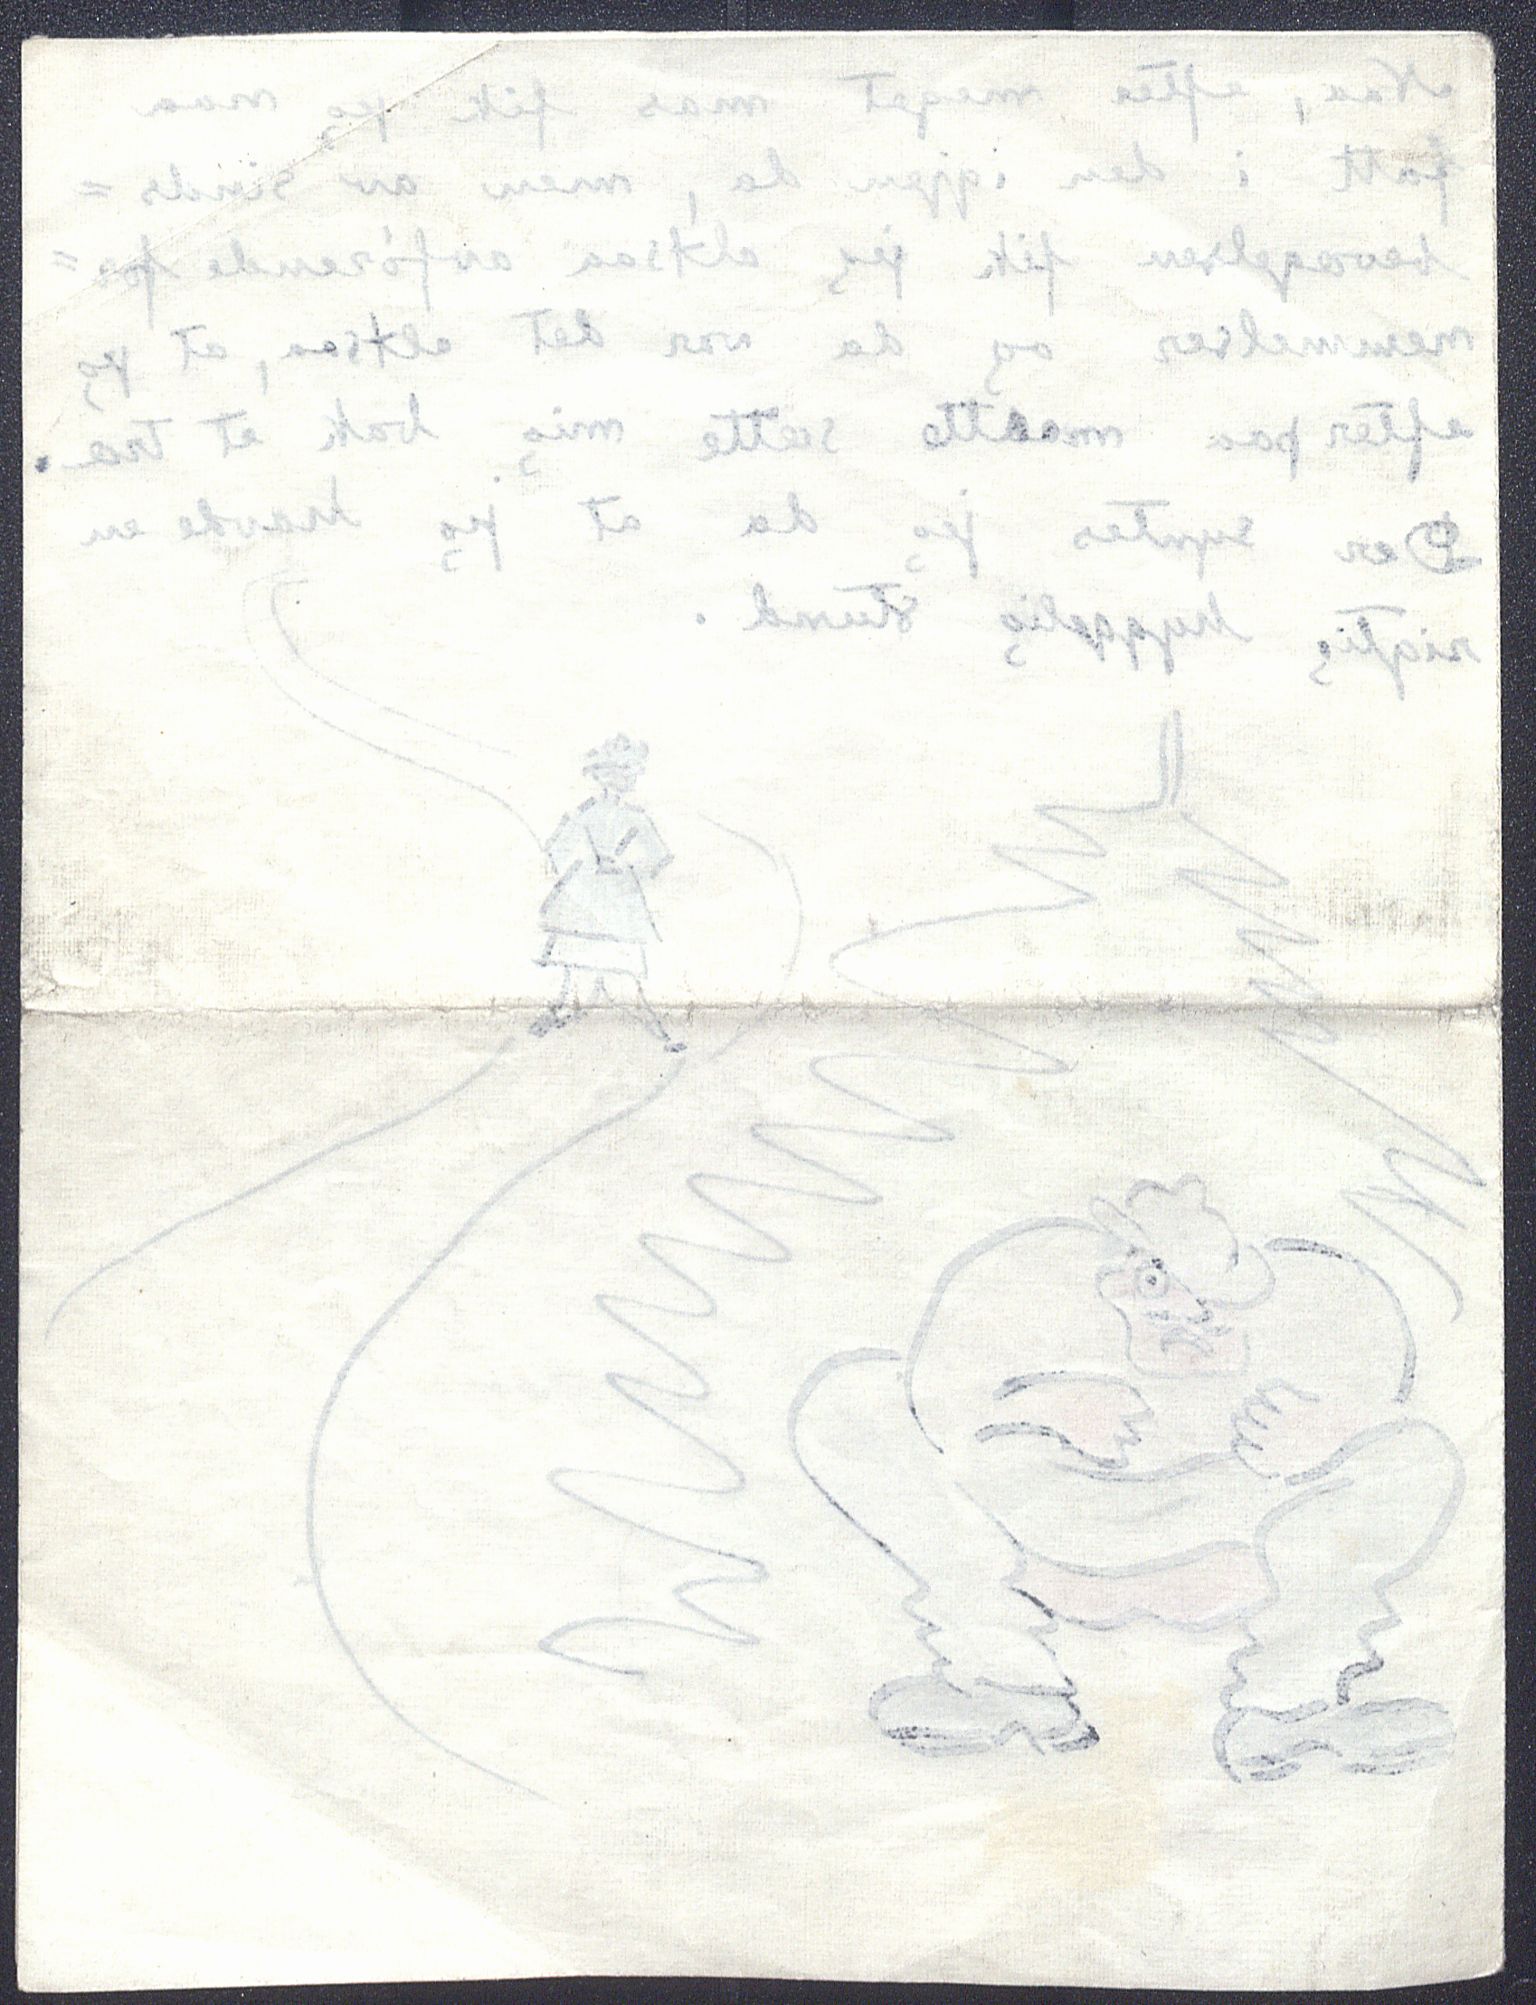 Naa, efter meget mas fik jeg maa
fatt i den igjen da, men av sinds=
bevægelsen fik jeg altsaa avførende for=
nemmelser og da var det altsaa, at jeg
efterpaa maatte sætte mig bak et træ.
Der syntes jeg da at jeg havde en
rigtig hyggelig stund.